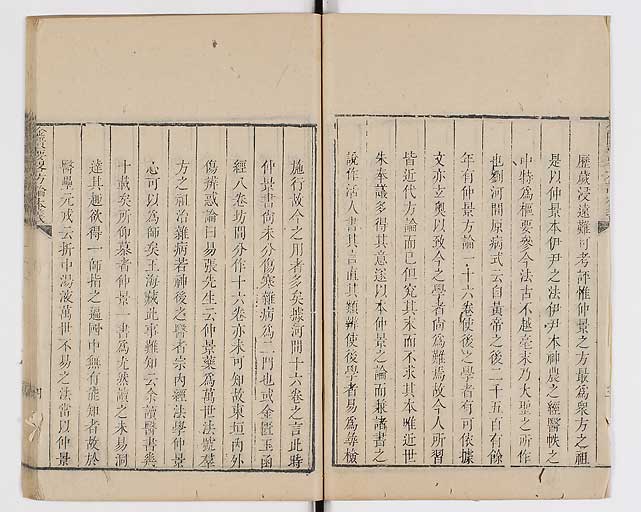 歷歲浸遠難可考評惟仲景之方最爲衆方之祖
是以仲景本伊尹之法伊尹本神農之經醫帙之
中特爲樞要參今法古不越毫末乃大聖之所作
也劉河間原病式云自黃帝之後二十五百有餘
年有仲景方論一十六卷使後之學者有可依據
文亦玄奥以致今之學者尙爲難焉故今人所習
皆近代方論而已但究其末而不求其本唯近世
朱奉議多得其意遂以本仲景之論而兼諸書之
說作活人書其言直其類辨使後學者易爲尋檢
施行故今之用者多矣據河間十六卷之言此時
仲景書尙未分傷寒雜病爲二門也或金匱玉函
經八卷坊間分作十六卷亦未可知故東垣內外
傷辨惑論曰易張先生云仲景藥爲萬世法號羣
方之祖治雜病若神後之醫者宗內經法學仲景
心可以爲師矣王海藏此事難知云余讀醫書幾
十載矣所仰慕者仲景一書爲尤然讀之未易洞
達其趣欲得一師指之遍國中無有能知者故於
醫壘元戎云折中湯液萬世不易之法當以仲景